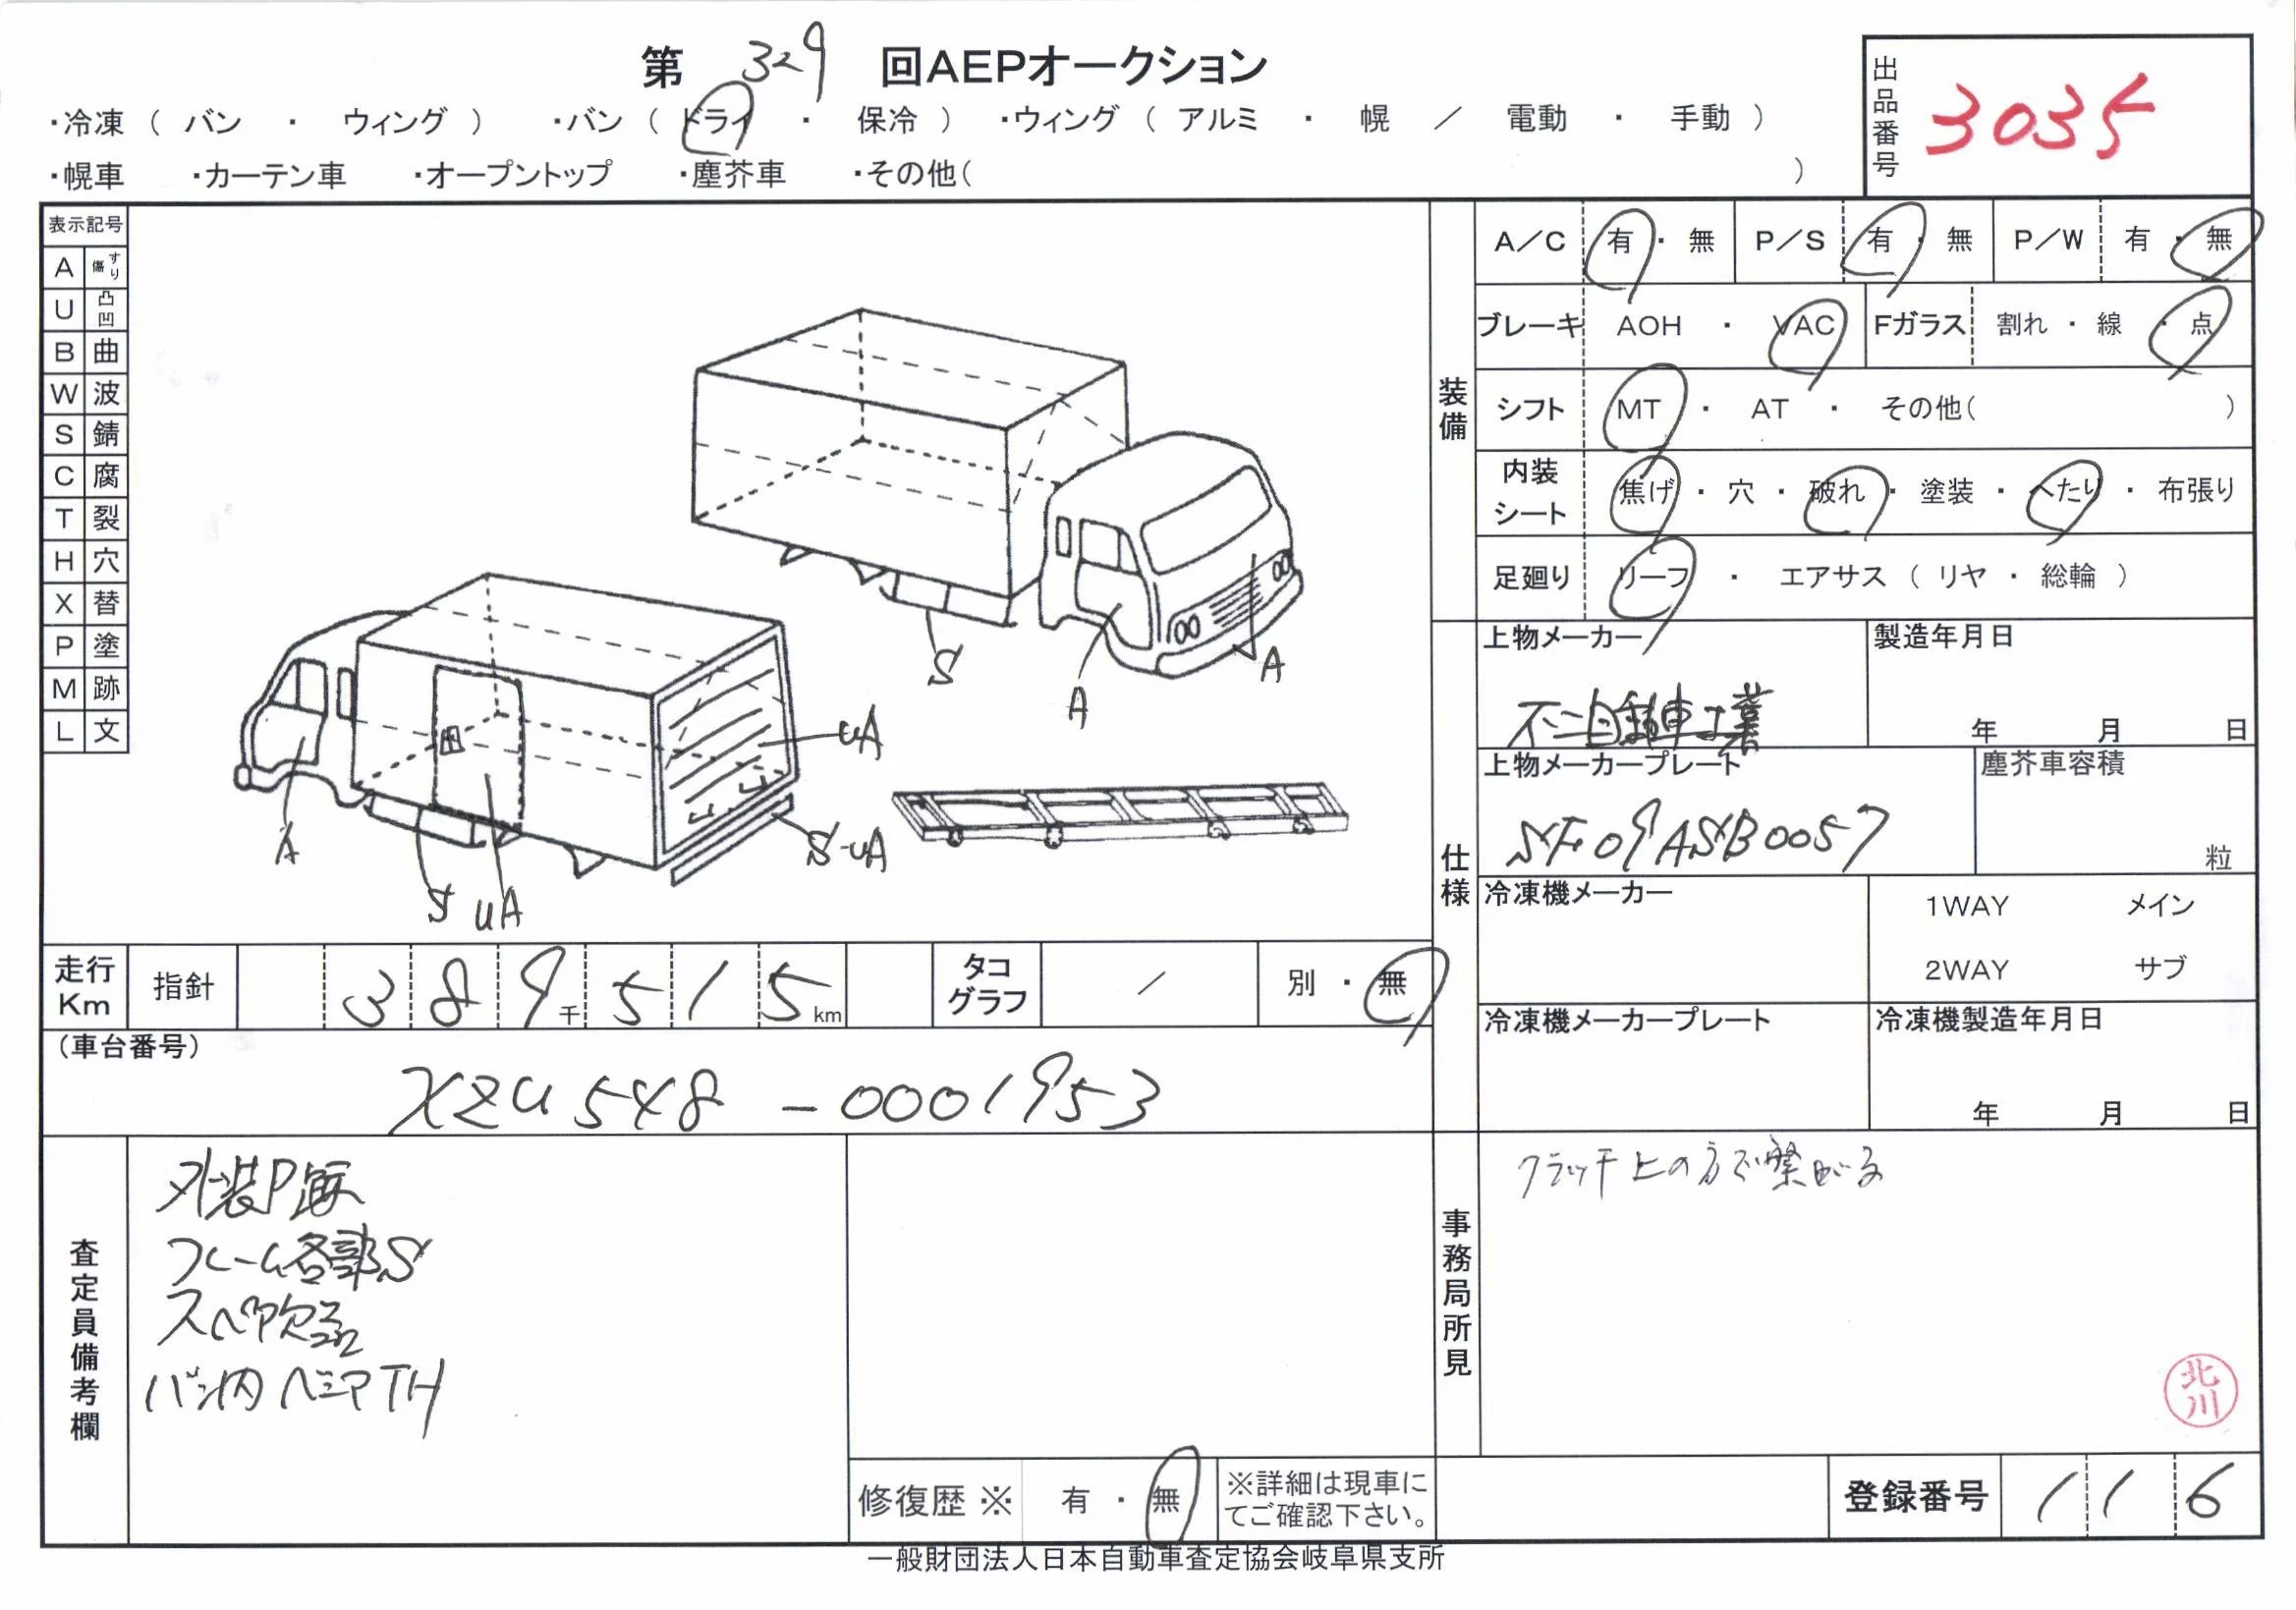 第 329 回AEPオークション
・冷凍 ( バン ・ ウィング ) ・バン ( ドライ ・ 保冷 ) ・ウィング ( アルミ ・ 幌 / 電動 ・ 手動 )
・幌車 ・カーテン車 ・オープントップ ・塵芥車 ・その他( )
出品番号 3035
表示記号
A すり傷
U 凸凹
B 曲
W 波
S 錆
C 腐
T 裂
H 穴
X 替
P 塗
M 跡
L 文
S
A
A
uA
S-uA
A
S
uA
装備
A/C 有・無 P/S 有・無 P/W 有・無
ブレーキ AOH ・ VAC Fガラス 割れ・線・点
シフト MT ・ AT ・ その他( )
内装シート 焦げ・穴・破れ・塗装・へたり・布張り
足廻り リーフ ・ エアサス ( リヤ ・ 総輪 )
仕様
上物メーカー 製造年月日
不二自動車工業 年 月 日
上物メーカープレート 塵芥車容積
SF09ASB0057 粒
冷凍機メーカー 1WAY メイン
2WAY サブ
冷凍機メーカープレート 冷凍機製造年月日
年 月 日
走行Km 指針 389千515km タコグラフ / 別・無
(車台番号)
XZU548-0001953
査定員備考欄
外装P
フレーム各部S
スペア欠品
バン内ベニアTH
修復歴※ 有・無 ※詳細は現車にてご確認下さい。
事務局所見
クラッチ上の方で繋がる
北川
登録番号 116
一般財団法人日本自動車査定協会岐阜県支所